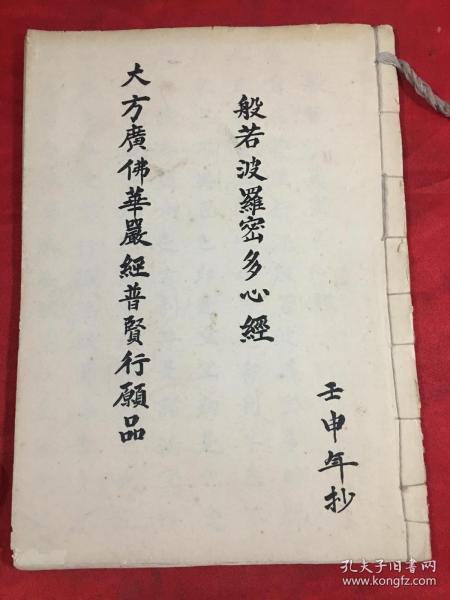 壬申年抄
般若波羅密多心經
大方廣佛華嚴經普賢行願品
孔夫子旧书网
www.kongfz.com